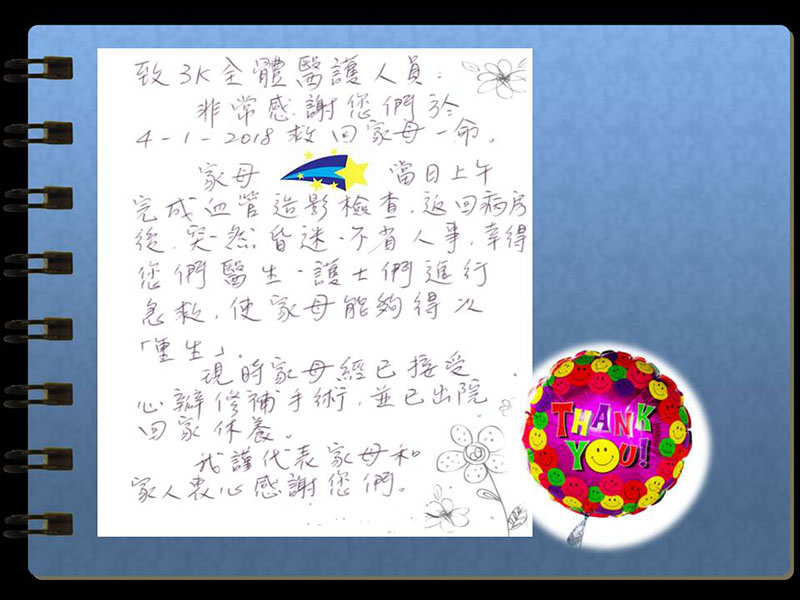 致3K全體醫護人員：
非常感謝您們於
4-1-2018救回家母一命。
家母 當日上午
完成血管造影檢查，返回病房
後，突然昏迷、不省人事，幸得
您們醫生、護士們進行
急救，使家母能夠得以
「重生」。
現時家母經已接受
心瓣修補手術，並已出院
回家休養。
我謹代表家母和
家人衷心感謝您們。
THANK
YOU!